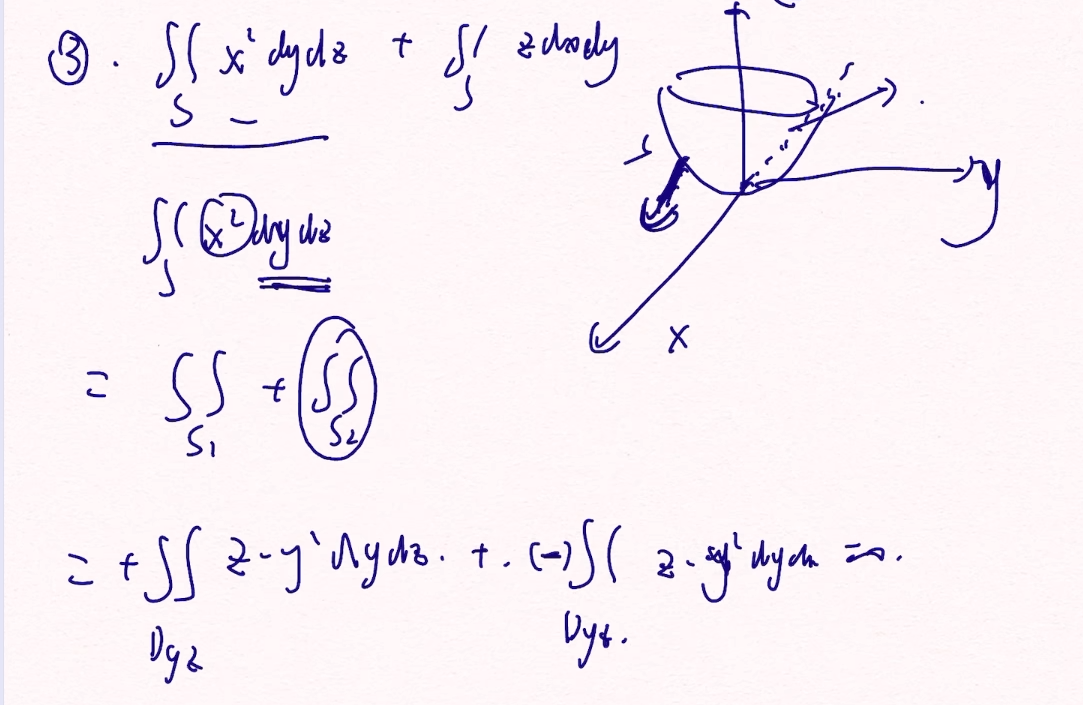 ③. ∬_S x² dydz + ∬_S z dxdy
∬_S x² dydz
= ∬_S1 + ∬_S2
= + ∬_Dyz z - y² dydz. + . (-) ∬_Dyz. z - y² dydz = 0.
S
y
x